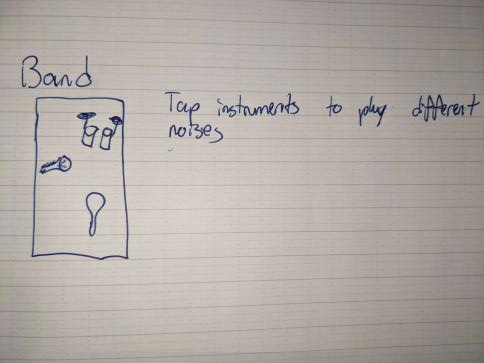 Band
Tap instruments to play different
noises